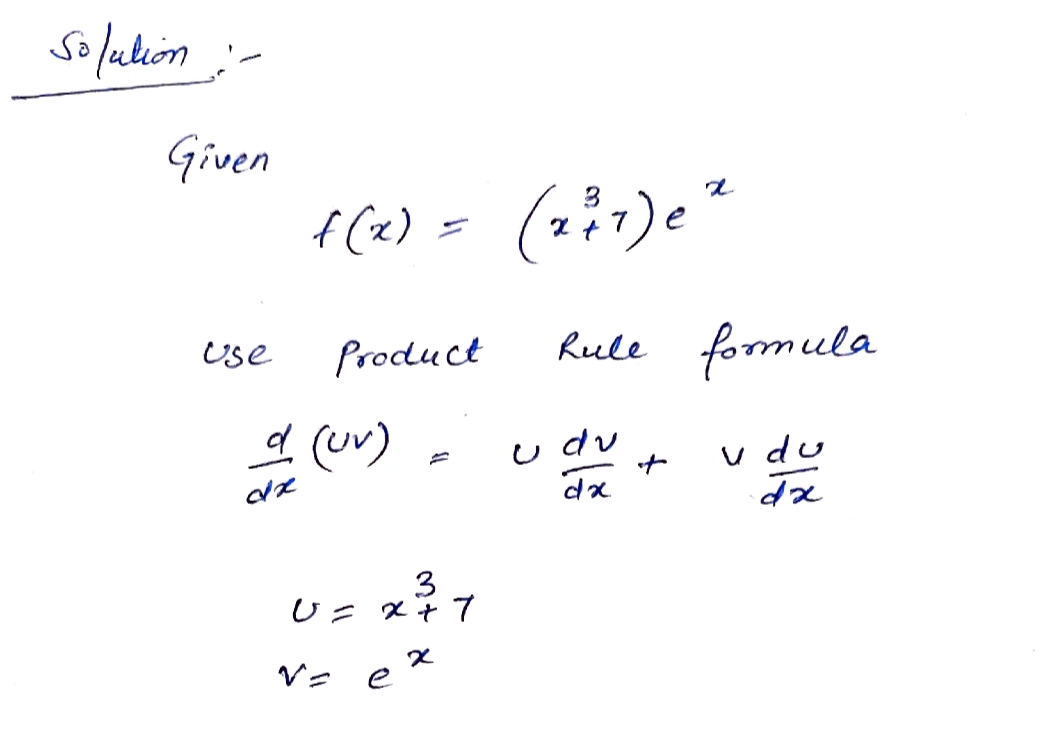 Solution :-
Given
f(x) = (x³+7)eˣ
Use Product Rule formula
d/dx (UV) = U dV/dx + V dU/dx
U = x³+7
V = eˣ